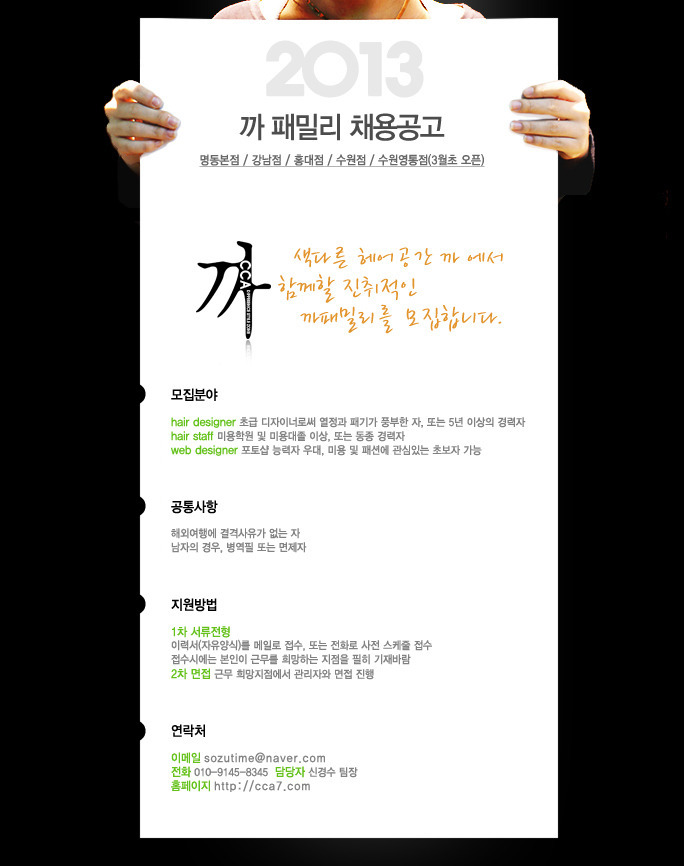 2013
까 패밀리 채용공고
명동본점 / 강남점 / 홍대점 / 수원점 / 수원영통점(3월초 오픈)
까
CCA
색다른 헤어공간 까 에서
함께할 진취적인
까패밀리를 모집합니다.
모집분야
hair designer 초급 디자이너로써 열정과 패기가 풍부한 자, 또는 5년 이상의 경력자
hair staff 미용학원 및 미용대졸 이상, 또는 동종 경력자
web designer 포토샵 능력자 우대, 미용 및 패션에 관심있는 초보자 가능
공통사항
해외여행에 결격사유가 없는 자
남자의 경우, 병역필 또는 면제자
지원방법
1차 서류전형
이력서(자유양식)를 메일로 접수, 또는 전화로 사전 스케줄 접수
접수시에는 본인이 근무를 희망하는 지점을 필히 기재바람
2차 면접 근무 희망지점에서 관리자와 면접 진행
연락처
이메일 sozutime@naver.com
전화 010-9145-8345 담당자 신경수 팀장
홈페이지 http://cca7.com